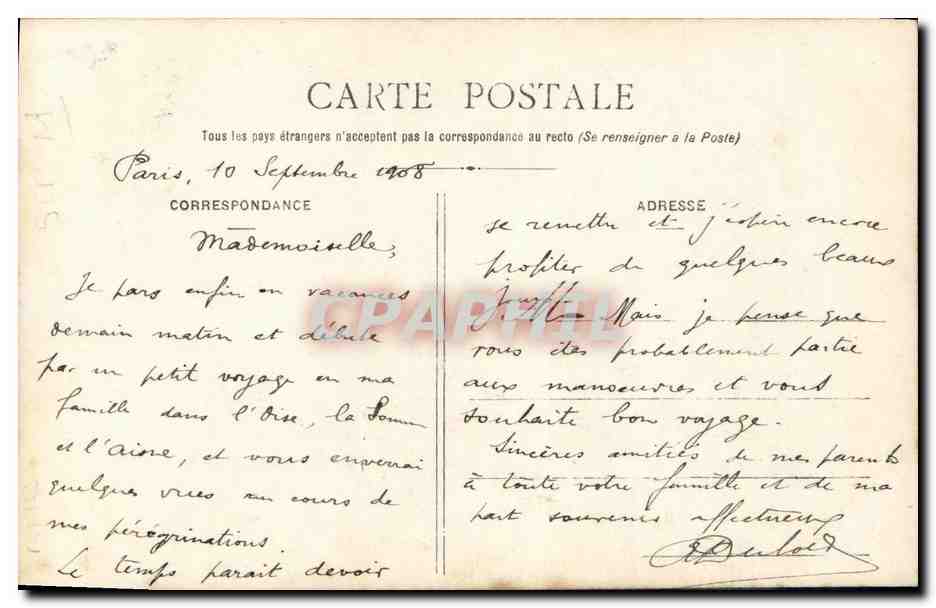 CARTE POSTALE
Tous les pays étrangers n'acceptent pas la correspondance au recto (Se renseigner a la Poste)
Paris, 10 Septembre 1908
CORRESPONDANCE
Mademoiselle,
Je pars enfin en vacances
demain matin et débute
par un petit voyage en ma
famille dans l'Oise, la Somme
et l'Aisne, et vous enverrai
quelques vues au cours de
mes pérégrinations.
Le temps parait devoir
ADRESSE
se remettre et j'espère encore
profiter de quelques beaux
jours. Mais je pense que
vous êtes probablement partie
aux manoeuvres et vous
souhaite bon voyage.
Sincères amitiés de mes parents
à toute votre famille et de ma
part souvenirs affectueux
CPAPHIL